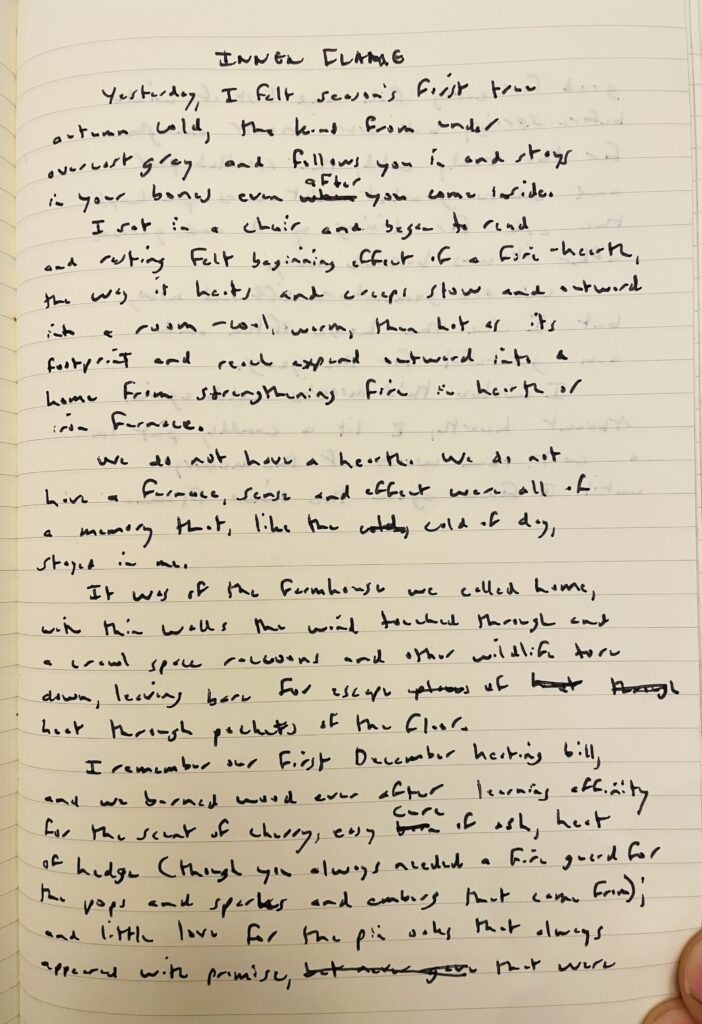 INNER FLAME
Yesterday, I felt season's first true
autumn cold, the kind from under
overcast gray and follows you in and stays
in your bones even when after you come inside.
I sat in a chair and began to read
and resting felt beginning effect of a fire-hearth,
the way it heats and creeps slow and outward
into a room - cool, warm, then hot as its
footprint and reach expand outward into a
home from strengthening fire in hearth or
iron furnace.
We do not have a hearth. We do not
have a furnace, sense and effect were all of
a memory that, like the cold, cold of day,
stayed in me.
It was of the farmhouse we called home,
with thin walls the wind touched through and
a crawl space raccoons and other wildlife tore
down, leaving bare for escape places of heat through
heat through pockets of the floor.
I remember our first December heating bill,
and we burned wood ever after learning affinity
for the scent of cherry, easy burn cure of ash, heat
of hedge (though you always needed a fire guard for
the pops and sparks and embers that came from);
and little love for the pin oaks that always
appeared with promise, but never gave that were